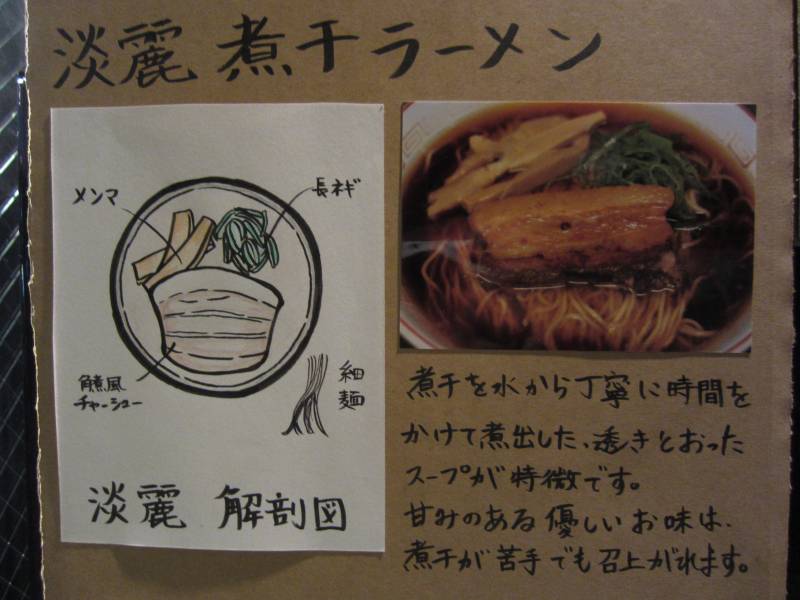 淡麗 煮干ラーメン
メンマ
長ネギ
角煮風
チャーシュー
細麺
淡麗 解剖図
煮干を水から丁寧に時間を
かけて煮出した、透きとおった
スープが特徴です。
甘みのある優しいお味は、
煮干が苦手でも召上がれます。